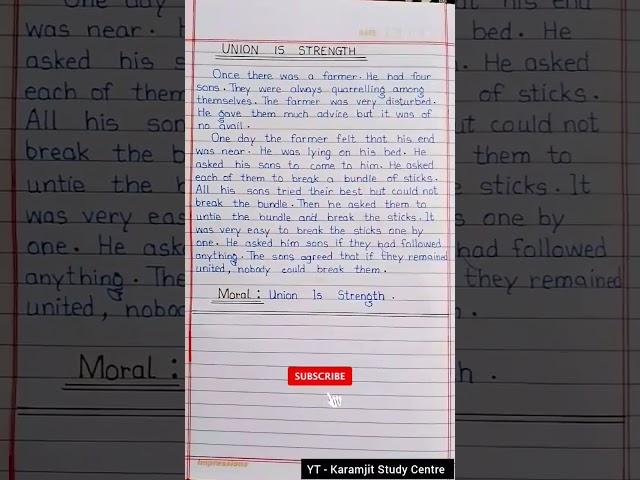 UNION IS STRENGTH
Once there was a farmer. He had four
sons. They were always quarrelling among
themselves. The farmer was very disturbed.
He gave them much advice but it was of
no avail.
One day the farmer felt that his end
was near. He was lying on his bed. He
asked his sons to come to him. He asked
each of them to break a bundle of sticks.
All his sons tried their best but could not
break the bundle. Then he asked them to
untie the bundle and break the sticks. It
was very easy to break the sticks one by
one. He asked him sons if they had followed
anything. The sons agreed that if they remained
united, nobody could break them.
Moral : Union Is Strength .
SUBSCRIBE
Impressions
YT - Karamjit Study Centre